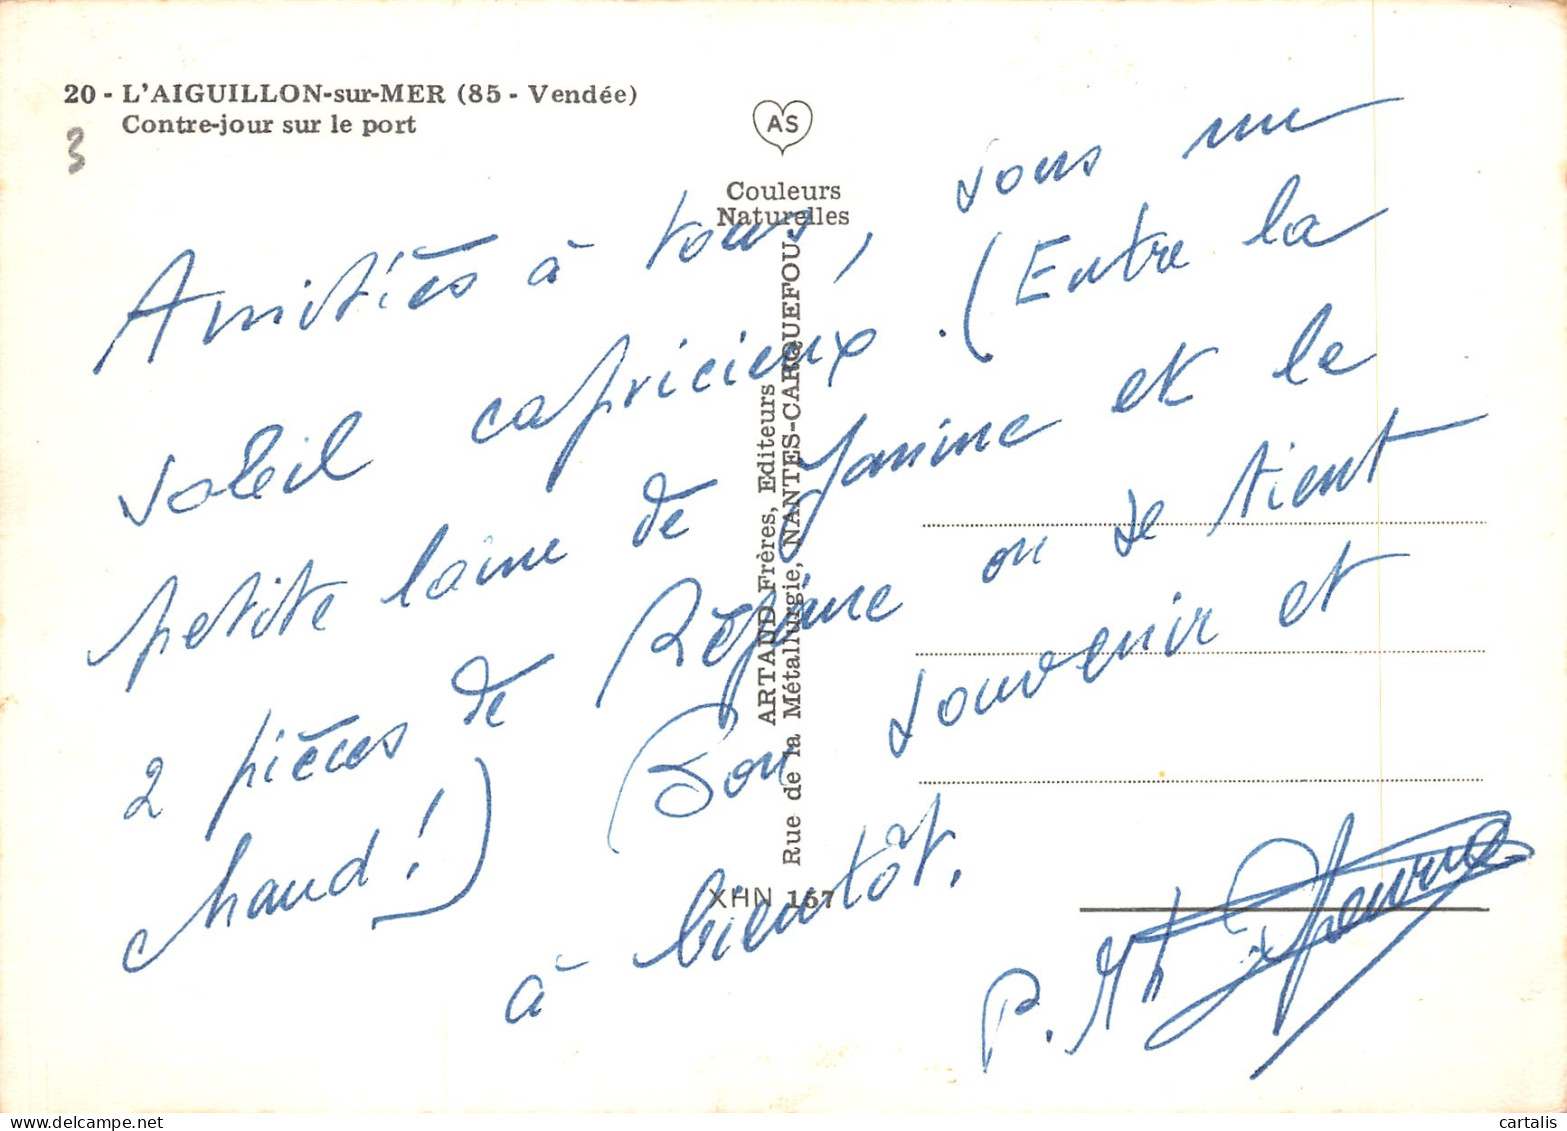 20 - L'AIGUILLON-sur-MER (85 - Vendée)
Contre-jour sur le port
3
AS
Couleurs
Naturelles
ARTAUD Frères, Editeurs
Rue de la Métallurgie, NANTES-CARQUEFOU
XHN 167
Amitiés à tous, sous un
soleil capricieux. (Entre la
petite laine de Janine et le
2 pièces de Réjane on se tient
chaud !) Bon souvenir et
à bientôt.
P. Mh
cartalis